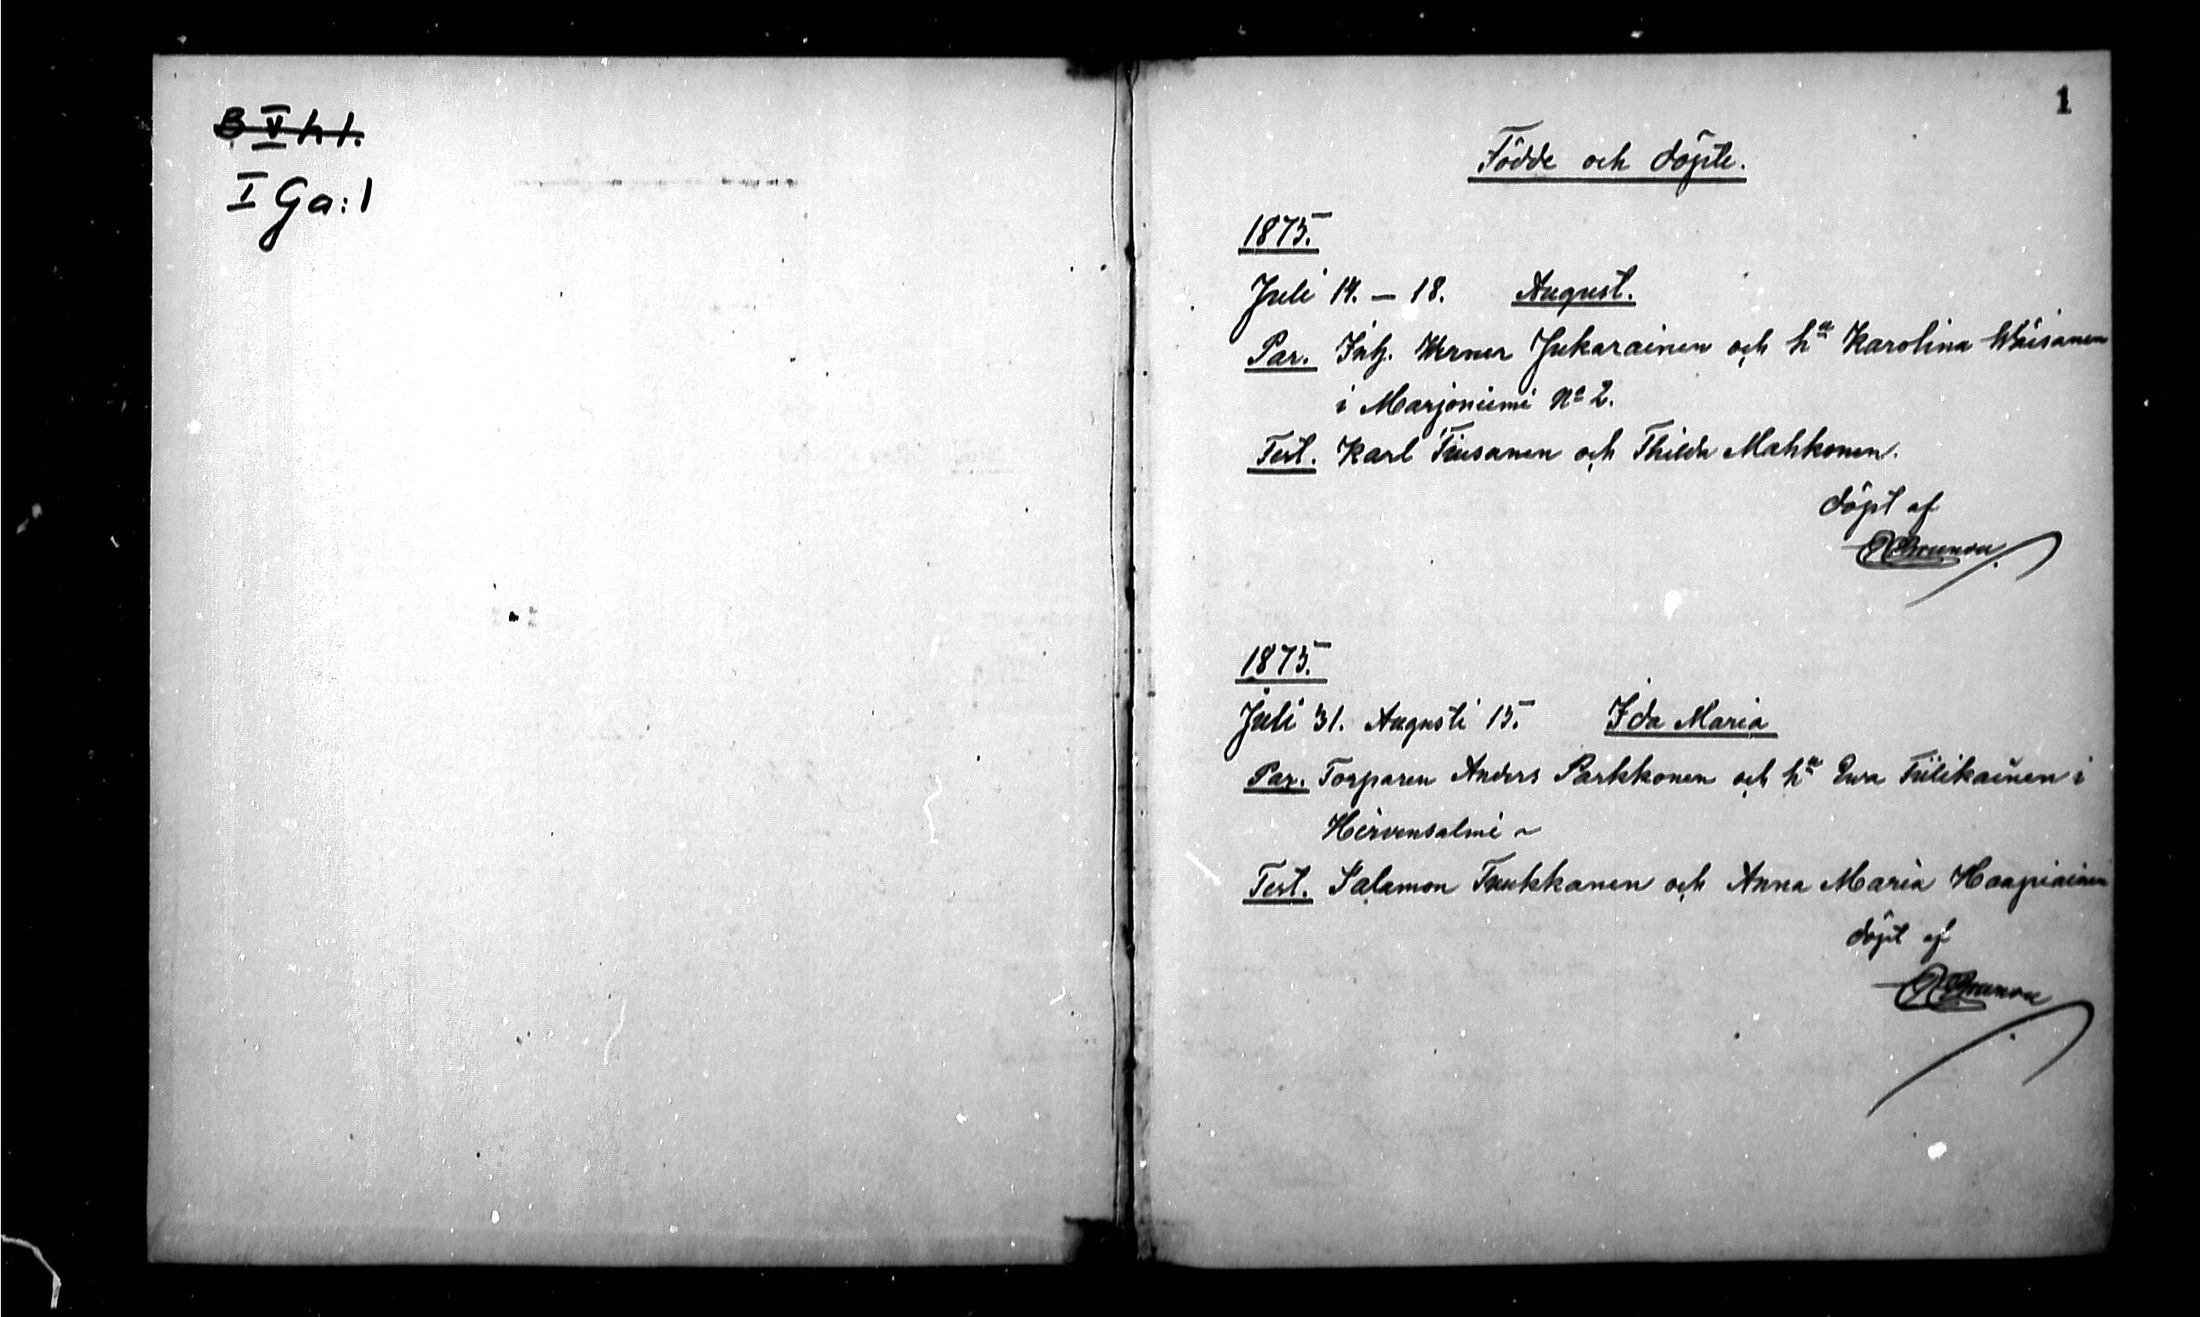 B V h 1.
I Ga: 1
1
Födde och döpte.
1875.
Juli 14. — 18. August.
Par. Inh. Werner Jukarainen och hª Karolina Wäisänen
i Marjoniemi Nº 2.
Test. Karl Tiusanen och Thilda Mahkonen.
döpt af
1875.
Juli 31. Augusti 15. Ida Maria
Par. Torparen Anders Parkkonen och hª Ewa Tiilikainen i
Hirvensalmi ~
Test. Salamon Tuukkanen och Anna Maria Haapiainen
döpt af